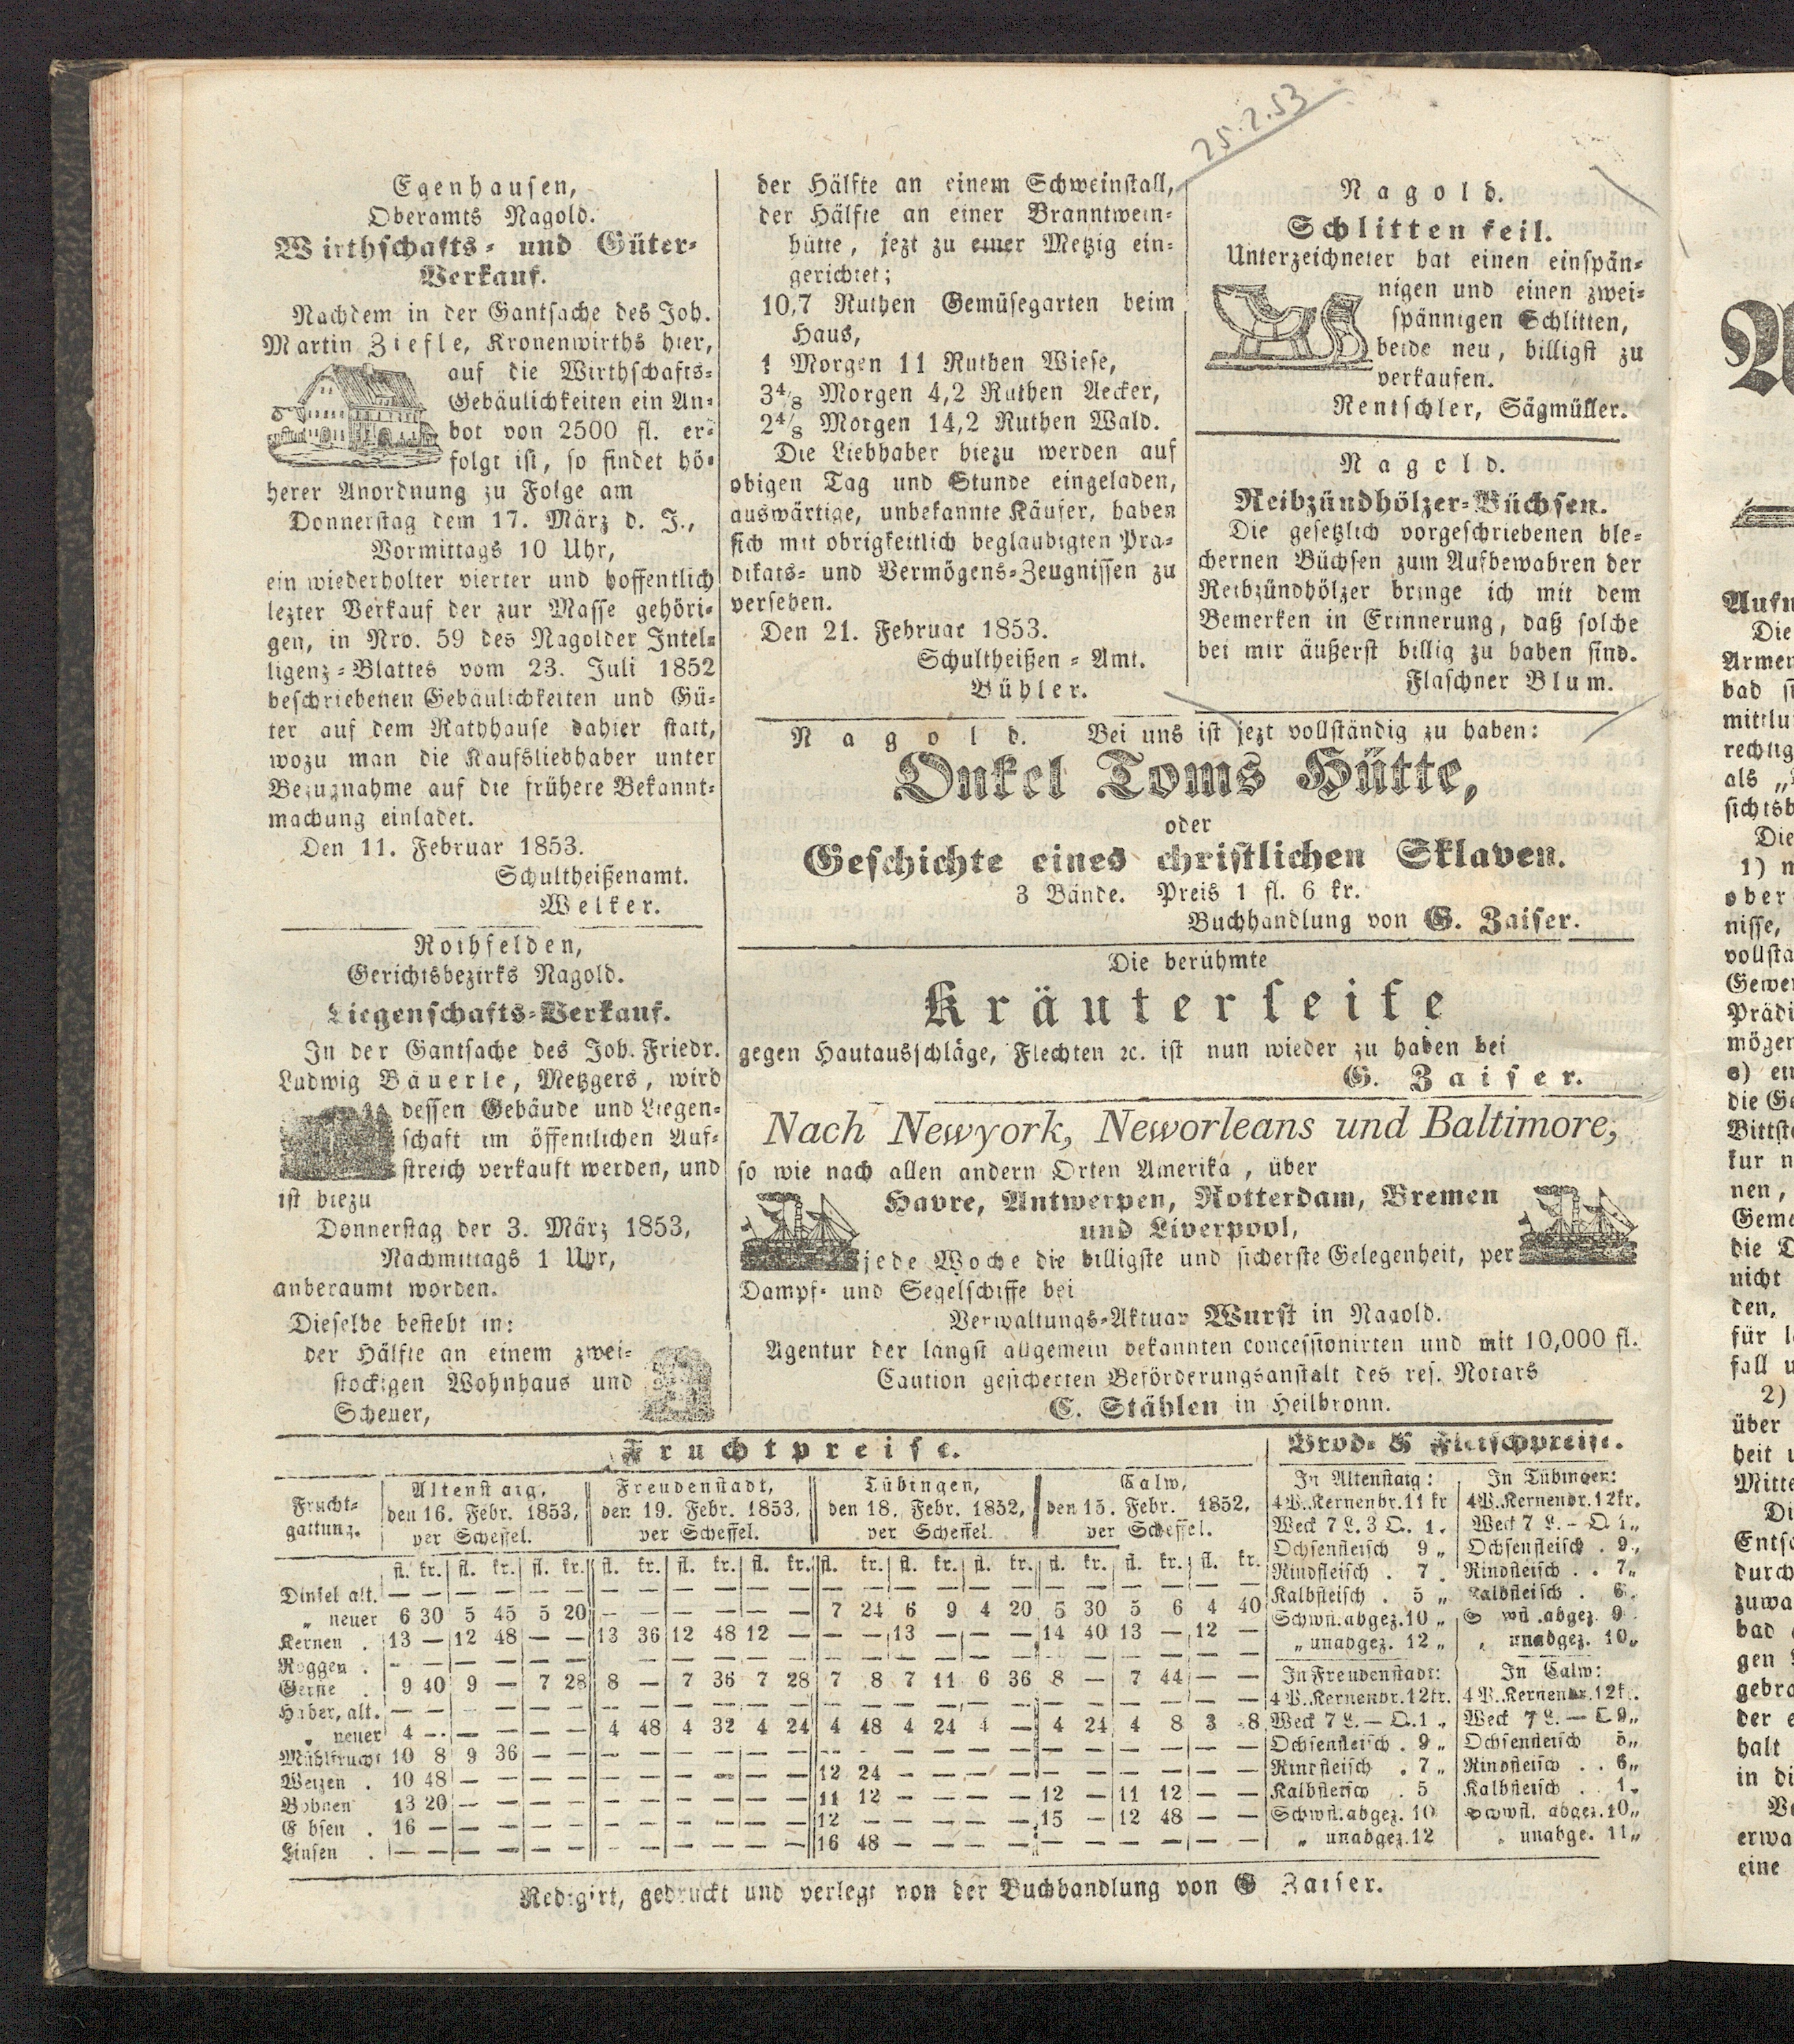 25.2.53
Egenhausen,
Oberamts Nagold.
Wirthschafts- und Güter-
Verkauf.
Nachdem in der Gantsache des Joh.
Martin Ziefle, Kronenwirths hier,
auf die Wirthschafts-
Gebäulichkeiten ein An-
bot von 2500 fl. er-
folgt ist, so findet hö-
herer Anordnung zu Folge am
Donnerstag dem 17. März d. J.,
Vormittags 10 Uhr,
ein wiederholter vierter und hoffentlich
lezter Verkauf der zur Masse gehöri-
gen, in Nro. 59 des Nagolder Intel-
ligenz-Blattes vom 23. Juli 1852
beschriebenen Gebäulichkeiten und Gü-
ter auf dem Rathhause dahier statt,
wozu man die Kaufsliebhaber unter
Bezugnahme auf die frühere Bekannt-
machung einladet.
Den 11. Februar 1853.
Schultheißenamt.
Welker.
Rothfelden,
Gerichtsbezirks Nagold.
Liegenschafts-Verkauf.
In der Gantsache des Joh. Friedr.
Ludwig Bäuerle, Metzgers, wird
dessen Gebäude und Liegen-
schaft im öffentlichen Auf-
streich verkauft werden, und
ist hiezu
Donnerstag der 3. März 1853,
Nachmittags 1 Uhr,
anberaumt worden.
Dieselbe besteht in:
der Hälfte an einem zwei-
stockigen Wohnhaus und
Scheuer,
der Hälfte an einem Schweinstall,
der Hälfte an einer Branntwein-
hütte, jezt zu einer Metzig ein-
gerichtet;
10,7 Ruthen Gemüsegarten beim
Haus,
1 Morgen 11 Ruthen Wiese,
3 4/8 Morgen 4,2 Ruthen Aecker,
2 4/8 Morgen 14,2 Ruthen Wald.
Die Liebhaber hiezu werden auf
obigen Tag und Stunde eingeladen,
auswärtige, unbekannte Käufer, haben
sich mit obrigkeitlich beglaubigten Prä-
dikats- und Vermögens-Zeugnissen zu
versehen.
Den 21. Februar 1853.
Schultheißen-Amt.
Bühler.
Nagold.
Schlitten feil.
Unterzeichneter hat einen einspän-
nigen und einen zwei-
spännigen Schlitten,
beide neu, billigst zu
verkaufen.
Rentschler, Sägmüller.
Nagold.
Reibzündhölzer-Büchsen.
Die gesetzlich vorgeschriebenen ble-
chernen Büchsen zum Aufbewahren der
Reibzündhölzer bringe ich mit dem
Bemerken in Erinnerung, daß solche
bei mir äußerst billig zu haben sind.
Flaschner Blum.
Nagold. Bei uns ist jezt vollständig zu haben:
Onkel Toms Hütte,
oder
Geschichte eines christlichen Sklaven.
3 Bände. Preis 1 fl. 6 kr.
Buchhandlung von G. Zaiser.
Die berühmte
Kräuterseife
gegen Hautausschläge, Flechten ꝛc. ist nun wieder zu haben bei
G. Zaiser.
Nach Newyork, Neworleans und Baltimore,
so wie nach allen andern Orten Amerika, über
Havre, Antwerpen, Rotterdam, Bremen
und Liverpool,
jede Woche die billigste und sicherste Gelegenheit, per
Dampf- und Segelschiffe bei
Verwaltungs-Aktuar Wurst in Nagold.
Agentur der längst allgemein bekannten concessionirten und mit 10,000 fl.
Caution gesicherten Beförderungsanstalt des res. Notars
C. Stählen in Heilbronn.
Fruchtpreise.
Frucht-
gattung.
Altenstaig,
den 16. Febr. 1853,
per Scheffel.
Freudenstadt,
den 19. Febr. 1853,
per Scheffel.
Tübingen,
den 18. Febr. 1852,
per Scheffel.
Calw,
den 15. Febr. 1852,
per Scheffel.
fl. kr. fl. kr. fl. kr. fl. kr. fl. kr. fl. kr. fl. kr. fl. kr. fl. kr. fl. kr. fl. kr. fl. kr.
Dinkel alt. — — — — — — — — — — — — — — — — — — — — — — — —
„ neuer 6 30 5 45 5 20 — — — — — — 7 24 6 9 4 20 5 30 5 6 4 40
Kernen . 13 — 12 48 — — 13 36 12 48 12 — — — 13 — — — 14 40 13 — 12 —
Roggen . — — — — — — — — — — — — — — — — — — — — — — — —
Gerste . 9 40 9 — 7 28 8 — 7 36 7 28 7 8 7 11 6 36 8 — 7 44 — —
Haber, alt. — — — — — — — — — — — — — — — — — — — — — — — —
„ neuer 4 — — — — — 4 48 4 32 4 24 4 48 4 24 4 — 4 24 4 8 3 8
Mühlfrucht 10 8 9 36 — — — — — — — — — — — — — — — — — — — —
Weizen . 10 48 — — — — — — — — — — 12 24 — — — — — — — — — —
Bohnen 13 20 — — — — — — — — — — 11 12 — — — — 12 — 11 12 — —
E bsen . 16 — — — — — — — — — — — 12 — — — — — 15 — 12 48 — —
Linsen . — — — — — — — — — — — — 16 48 — — — — — — — — — —
Brod- & Fleischpreise.
In Altenstaig:
4 P. Kernenbr. 11 kr
Weck 7 L. 3 Q. 1 .
Ochsenfleisch 9 „
Rindfleisch . 7 .
Kalbfleisch . 5 „
Schwfl. abgez. 10 „
„ unabgez. 12 „
In Tübingen:
4 P. Kernenbr. 12 kr.
Weck 7 L. – Q. 1 „
Ochsenfleisch . 9 „
Rindfleisch . . 7 „
Kalbfleisch . 6 .
Schwfl. abgez. 9 .
„ unabgez. 10 „
In Freudenstadt:
4 P. Kernenbr. 12 kr.
Weck 7 L. — Q. 1 „
Ochsenfleisch . 9 „
Rindfleisch . 7 „
Kalbfleisch . 5
Schwfl. abgez. 10
„ unabgez. 12
In Calw:
4 P. Kernenbr. 12 k.
Weck 7 L. —
Ochsenfleisch
Rindfleisch . . 6 „
Kalbfleisch . .
Schwfl. abgez. 10 „
„ unabge. 11 „
Redigirt, gedruckt und verlegt von der Buchhandlung von G Zaiser.
Aufn
Die
Armen
bad
mittlu
rechtig
als
sichtsb
Die
1)
ober
nisse,
vollsta
Gewer
Prädi
mögen
die Ge
Bittste
kur n
nen,
Geme
die D
nicht
den,
für
fall u
2)
über
heit
Mitte
Di
Entsc
durch
zuwa
bad
gen
gebra
der
halt
in di
erwa
eine